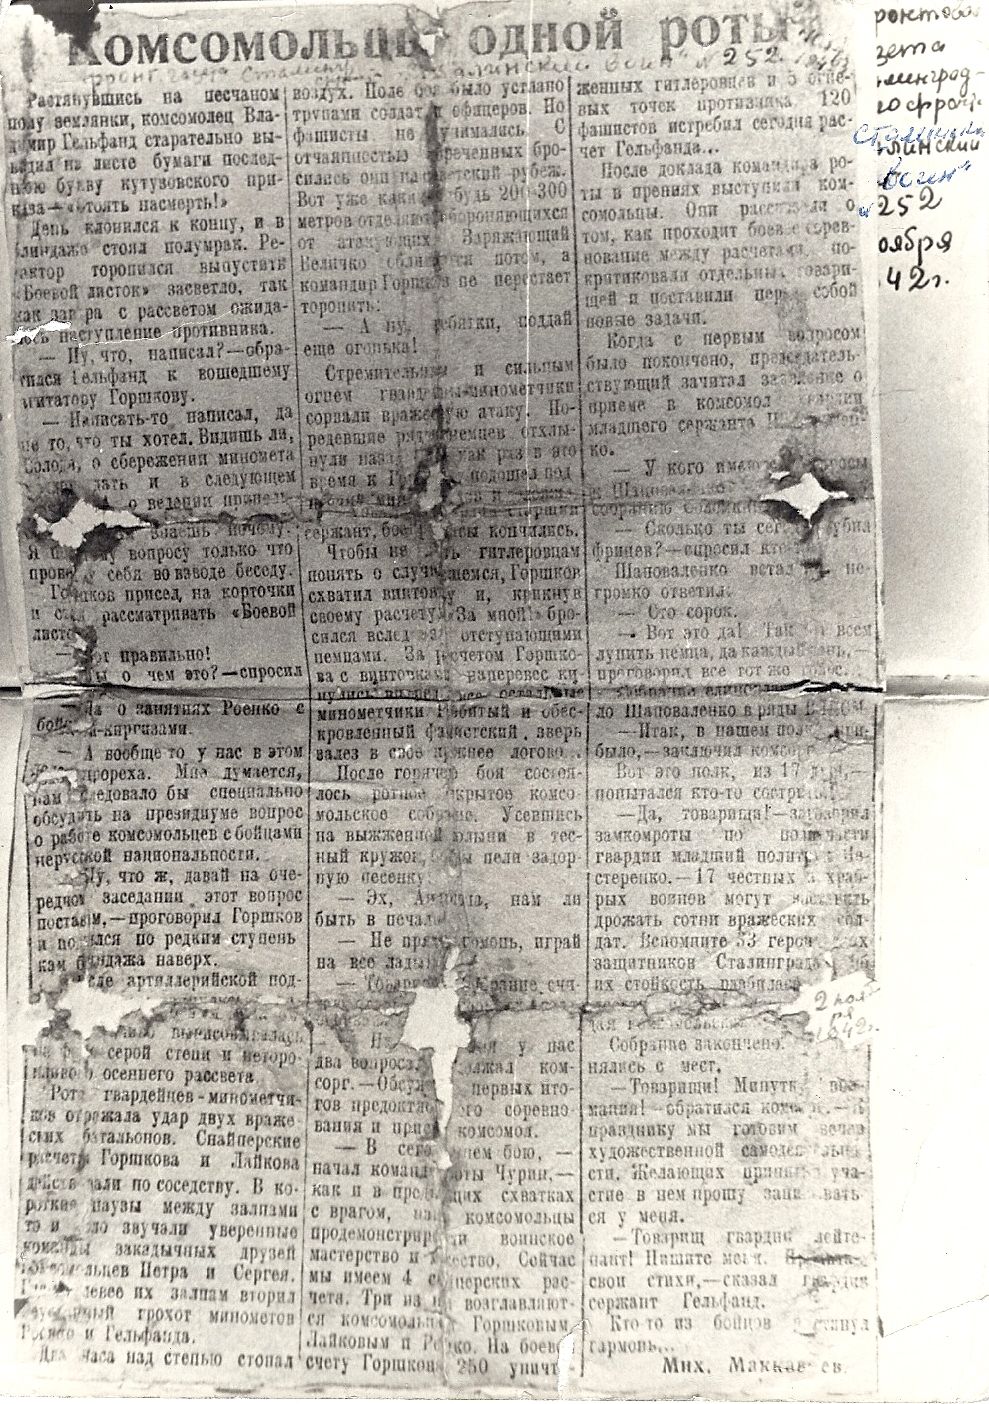 Комсомольцы одной роты
Растянувшись на песчаном
полу землянки, комсомолец Вла-
димир Гельфанд старательно вы-
водил на листе бумаги послед-
нюю букву кутузовского при-
каза—«стоять насмерть!»
День клонился к концу, и в
блиндаже стоял полумрак. Ре-
дактор торопился выпустить
«Боевой листок» засветло, так
как завтра с рассветом ожида-
лось наступление противника.
— Ну, что, написал?—обра-
тился Гельфанд к вошедшему
агитатору Горшкову.
— Написать-то написал, да
не то, что ты хотел. Видишь ли,
Володя, о сбережении миномета
дать и в следующем
о ведении
знаешь почему.
Я вопросу только что
провел у себя во взводе беседу.
Горшков присел на корточки
и стал рассматривать «Боевой
листок».
— Вот правильно!
— Ты о чем это?—спросил
— Да о занятиях Роенко с
бойцами-киргизами.
— А вообще то у нас в этом
прореха. Мне думается,
нам следовало бы специально
обсудить на президиуме вопрос
о работе комсомольцев с бойцами
нерусской национальности.
— Ну, что ж, давай на оче-
редном заседании этот вопрос
поставим,—проговорил Горшков
и поднялся по редким ступень
кам блиндажа наверх.
После артиллерийской под-
на фоне серой степи и неторо-
пливого осеннего рассвета
Рота гвардейцев-минометчи-
ков отражала удар двух враже-
ских батальонов. Снайперские
расчеты Горшкова и Лайкова
действовали по соседству. В ко-
роткие паузы между залпами
то и дело звучали уверенные
команды закадычных друзей
комсомольцев Петра и Сергея.
левее их залпам вторил
грохот минометов
Роенко и Гельфанда.
Два часа над степью стонал
воздух. Поле боя было устлано
трупами солдат и офицеров. Но
фашисты не унимались. С
отчаянностью обреченных бро-
сились они на советский рубеж.
Вот уже каких нибудь 200-300
метров отделяют обороняющихся
от атакующих. Заряжающий
Величко обливается потом, а
командир Горшков не перестает
торопить:
— А ну, ребятки, поддай
еще огонька!
Стремительным и сильным
огнем гвардейцы-минометчики
сорвали вражескую атаку. По-
редевшие ряды немцев отхлы-
нули назад. Как раз в это
время к подошел под-
старший
сержант, боеприпасы кончились.
Чтобы не дать гитлеровцам
понять о случившемся, Горшков
схватил винтовку и, крикнув
своему расчету: «За мной!» бро-
сился вслед за отступающими
немцами. За расчетом Горшко-
ва с винтовками наперевес ки-
нулись вперед все остальные
минометчики. Избитый и обес-
кровленный фашистский зверь
залез в свое прежнее логово.
После горячего боя состоя-
лось ротное открытое комсо-
мольское собрание. Усевшись
на выжженной полыни в тес-
ный кружок, бойцы пели задор-
ную песенку:
— Эх, нам ли
быть в печали
— Не прячь гармонь, играй
на все лады.
— счи-
— у нас
два вопроса, продолжал ком-
сорг.—Обсуждение первых ито-
гов предоктябрьского соревно-
вания и прием в комсомол.
— В сегодняшнем бою,—
начал командир роты Чурин,—
как и в предыдущих схватках
с врагом, наши комсомольцы
продемонстрировали воинское
мастерство и мужество. Сейчас
мы имеем 4 снайперских рас-
чета. Три из них возглавляют-
ся комсомольцами Горшковым,
Лайковым и Роенко. На боевом
счету Горшкова 250 уничто-
женных гитлеровцев и 5 огне-
вых точек противника, 120
фашистов истребил сегодня рас-
чет Гельфанда...
После доклада командира ро-
ты в прениях выступили ком-
сомольцы. Они рассказали о
том, как проходит боевое сорев-
нование между расчетами, по-
критиковали отдельных товари-
щей и поставили перед собой
новые задачи.
Когда с первым вопросом
было покончено, председатель-
ствующий зачитал заявление о
приеме в комсомол гвардии
младшего сержанта Шаповален-
ко.
— У кого имеются вопросы
к Шаповаленко?
— Сколько ты сегодня убил
фрицев?—спросил кто-то.
Шаповаленко встал и не-
громко ответил:
— Сто сорок.
— Вот это да! Так бы всем
лупить немца, да каждый день,—
проговорил все тот же голос.
ло Шаповаленко в ряды ВЛКСМ.
—Итак, в нашем полку при-
было,—заключил комсорг.
Вот это полк, из 17 душ,—
попытался кто-то сострить.
—Да, товарищи!—заговорил
замкомроты по политчасти
гвардии младший политрук Не-
стеренко.—17 честных и храб-
рых воинов могут заставить
дрожать сотни вражеских сол-
дат. Вспомните 33 героических
защитников Сталинграда.
их стойкость разбилась
Собрание закончено.
нялись с мест.
—Товарищи! Минутку вни-
мания!—обратился комсорг.—К
празднику мы готовим вечер
художественной самодеятельно-
сти. Желающих принять уча-
стие в нем прошу записывать-
ся у меня.
—Товарищ гвардии лейте-
нант! Пишите меня.
свои стихи,—сказал гвардии
сержант Гельфанд.
Кто-то из бойцов растянул
гармонь...
Мих. Маккавеев.
воин" № 252
2 ноября
1942г.
газета
Сталинский
воин"
№252
ноября
42г.